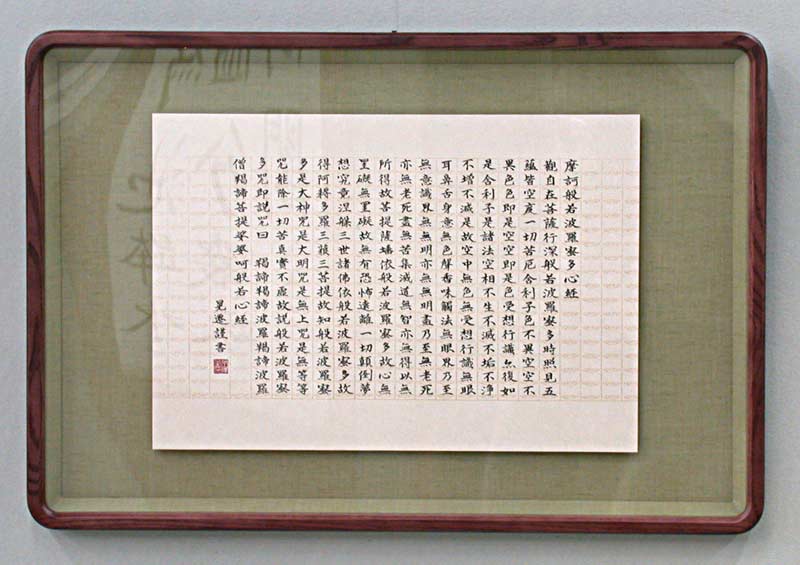 摩訶般若波羅蜜多心經
觀自在菩薩行深般若波羅蜜多時照見五
蘊皆空度一切苦厄舍利子色不異空空不
異色色即是空空即是色受想行識亦復如
是舍利子是諸法空相不生不滅不垢不淨
不増不減是故空中無色無受想行識無眼
耳鼻舌身意無色聲香味觸法無眼界乃至
無意識界無無明亦無無明盡乃至無老死
亦無老死盡無苦集滅道無智亦無得以無
所得故菩提薩埵依般若波羅蜜多故心無
罣礙無罣礙故無有恐怖遠離一切顛倒夢
想究竟涅槃三世諸佛依般若波羅蜜多故
得阿耨多羅三藐三菩提故知般若波羅蜜
多是大神咒是大明咒是無上咒是無等等
咒能除一切苦真實不虚故説般若波羅蜜
多咒即説咒曰　羯諦羯諦波羅羯諦波羅
僧羯諦菩提娑婆呵般若心經
謹書